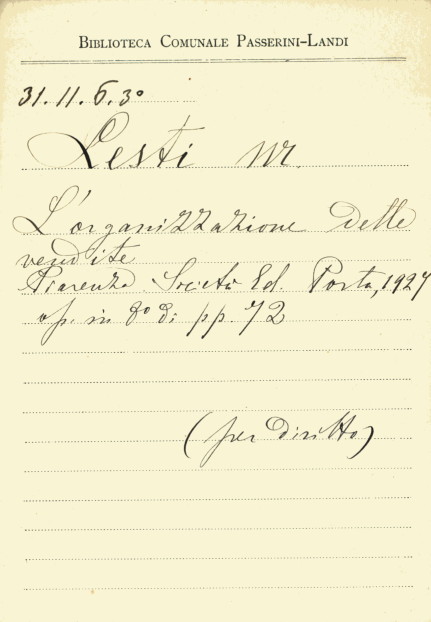 BIBLIOTECA COMUNALE PASSERINI-LANDI
31. 11. 6. 3º
Lesti M.
L'organizzazione delle
vendite
Piacenza Società Ed. Porta, 1927
op. in 8º di pp. 72
(per diritto)